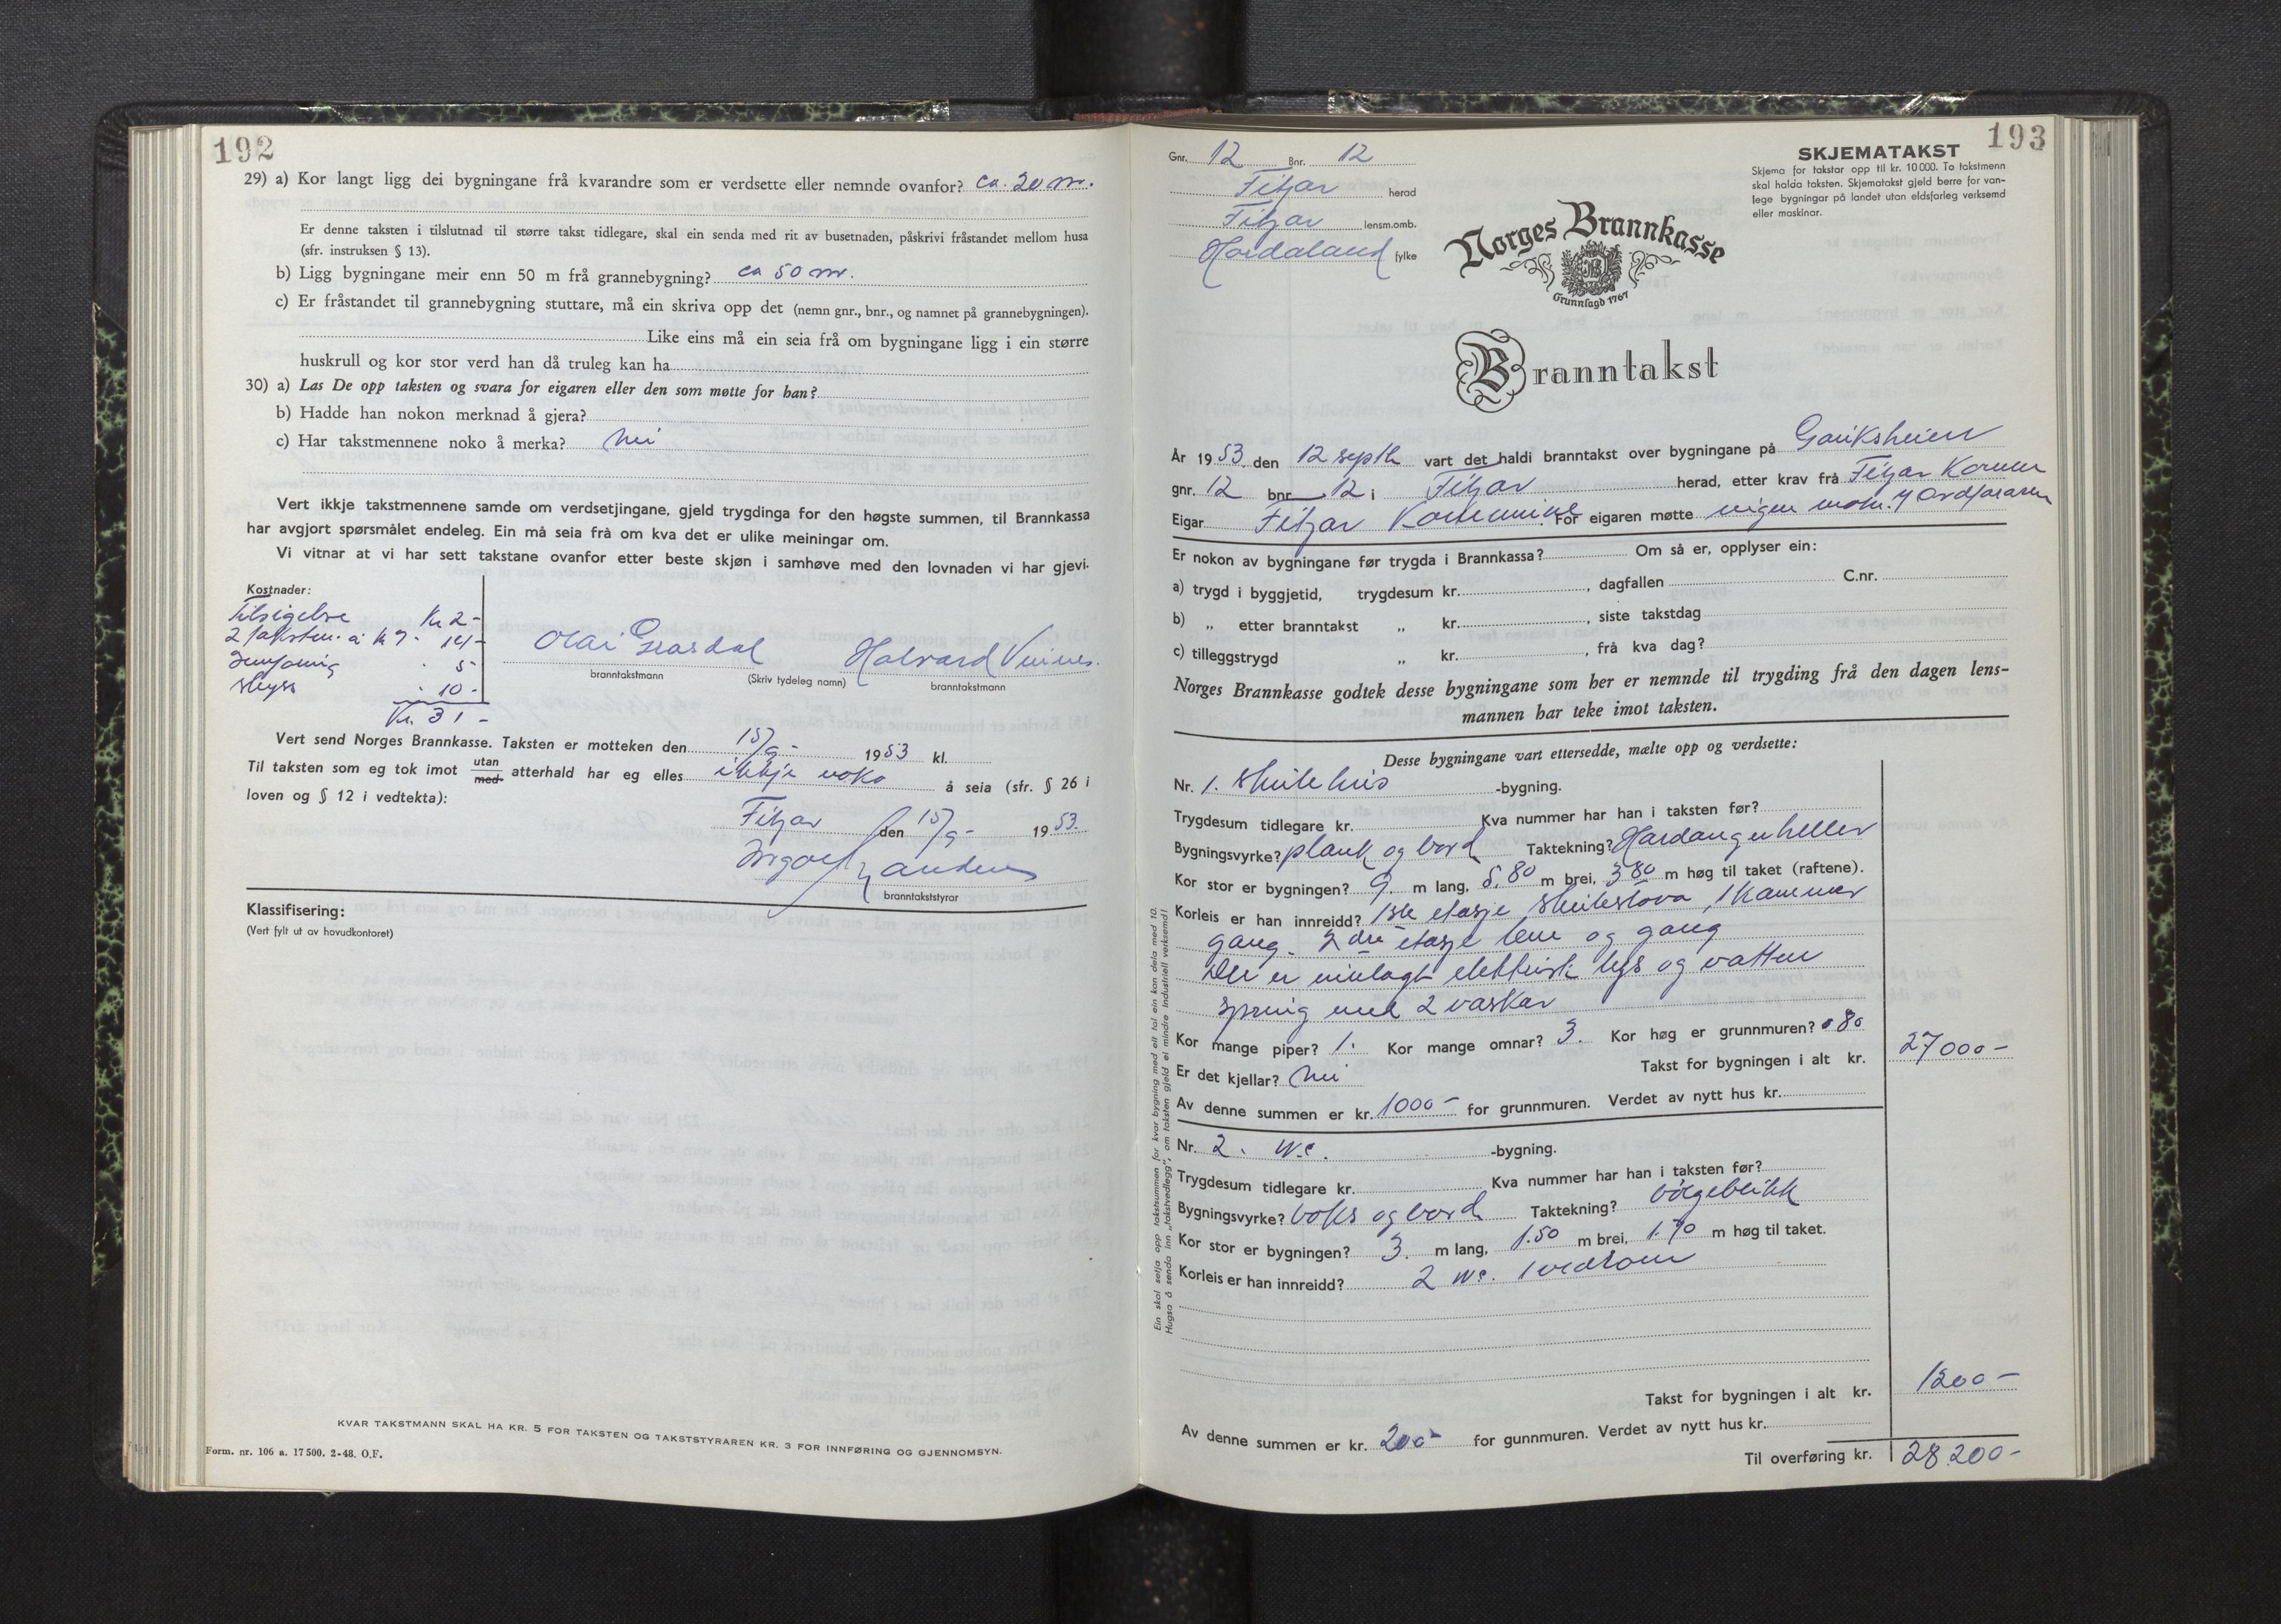 192
29) a) Kor langt ligg dei bygningane frå kvarandre som er verdsette eller nemnde ovanfor? ca. 20 m.
Er denne taksten i tilslutnad til større takst tidlegare, skal ein senda med rit av busetnaden, påskrivi fråstandet mellom husa
(sfr. instruksen § 13).
b) Ligg bygningane meir enn 50 m frå grannebygning? ca 50 m.
c) Er fråstandet til grannebygning stuttare, må ein skriva opp det (nemn gnr., bnr., og namnet på grannebygningen).
Like eins må ein seia frå om bygningane ligg i ein større
huskrull og kor stor verd han då truleg kan ha
30) a) Las De opp taksten og svara for eigaren eller den som møtte for han?
b) Hadde han nokon merknad å gjera?
c) Har takstmennene noko å merka? nei
Vert ikkje takstmennene samde om verdsetjingane, gjeld trygdinga for den høgste summen, til Brannkassa
har avgjort spørsmålet endeleg. Ein må seia frå om kva det er ulike meiningar om.
Vi vitnar at vi har sett takstane ovanfor etter beste skjøn i samhøve med den lovnaden vi har gjevi.
Kostnader:
Tilsigelse Kr 2-
2 takstm. a kr 7- 14-
Innføring 5-
skyss 10-
Kr. 31-
Olai
Halvard
branntakstmann (Skriv tydeleg namn) branntakstmann
Vert send Norges Brannkasse. Taksten er motteken den 15/9- 1953 kl.
Til taksten som eg tok imot utan med atterhald har eg elles ikkje noko å seia (sfr. § 26 i
loven og § 12 i vedtekta):
Fitjar den 15/9- 1953.
branntakststyrar
Klassifisering:
(Vert fylt ut av hovudkontoret)
KVAR TAKSTMANN SKAL HA KR. 5 FOR TAKSTEN OG TAKSTSTYRAREN KR. 3 FOR INNFØRING OG GJENNOMSYN.
Form. nr. 106 a. 17500. 2-48. O.F.
193
Gnr. 12 Bnr. 12
Fitjar herad
Fitjar lensm.omb.
Hordaland fylke
SKJEMATAKST
Skjema for takstar opp til kr. 10000. To takstmenn
skal halda taksten. Skjematakst gjeld berre for van-
lege bygningar på landet utan eldsfarleg verksemd
eller maskinar.
Norges Brannkasse
Grunnlagd 1767
Branntakst
År 1953. den 12 septb vart det haldi branntakst over bygningane på
gnr. 12 bnr. 12 i Fitjar herad, etter krav frå Fitjar Komm
Eigar Fitjar Kommune. For eigaren møtte ingen Ordføraren
Er nokon av bygningane før trygda i Brannkassa? Om så er, opplyser ein:
a) trygd i byggjetid, trygdesum kr. , dagfallen C.nr.
b) „ etter branntakst „ kr. , siste takstdag
c) tilleggstrygd „ kr. , frå kva dag?
Norges Brannkasse godtek desse bygningane som her er nemnde til trygding frå den dagen lens-
mannen har teke imot taksten.
Desse bygningane vart ettersedde, mælte opp og verdsette:
Nr. 1. Skulehus -bygning.
Trygdesum tidlegare kr. Kva nummer har han i taksten før?
Bygningsvyrke? plank og bord Taktekning? Hardangerheller
Kor stor er bygningen? 9. m lang, 5.80 m brei, 3.80 m høg til taket (raftene).
Korleis er han innreidd? 1ste etasje skulestova, 1 kammer
gang. 2dre etasje lem og gang
Der er innlagt elektrisk lys og vatten
spring med 2 vaskar
Kor mange piper? 1. Kor mange omnar? 3. Kor høg er grunnmuren? 0.80
Er det kjellar? nei Takst for bygningen i alt kr. 27000-
Av denne summen er kr. 1000- for grunnmuren. Verdet av nytt hus kr.
Nr. 2. w.c. -bygning.
Trygdesum tidlegare kr. Kva nummer har han i taksten før?
Bygningsvyrke? boks og bord Taktekning? bølgeblikk
Kor stor er bygningen? 3. m lang, 1.50 m brei, 1.70 m høg til taket.
Korleis er han innreidd? 2 wc. 1 vedrom
Takst for bygningen i alt kr. 1200-
Av denne summen er kr. 200- for gunnmuren. Verdet av nytt hus kr.
Til overføring kr. 28.200-
Ein skal setja opp takstsummen for kvar bygning med eit tal ein kan dela med 10.
Hugsa å senda inn „takstvedlegg", om taksten gjeld ei mindre industriell verksemd!